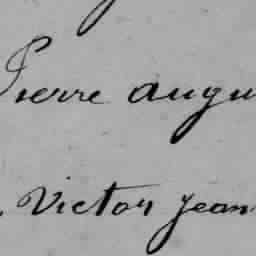 Pierre augu
Victor Jean